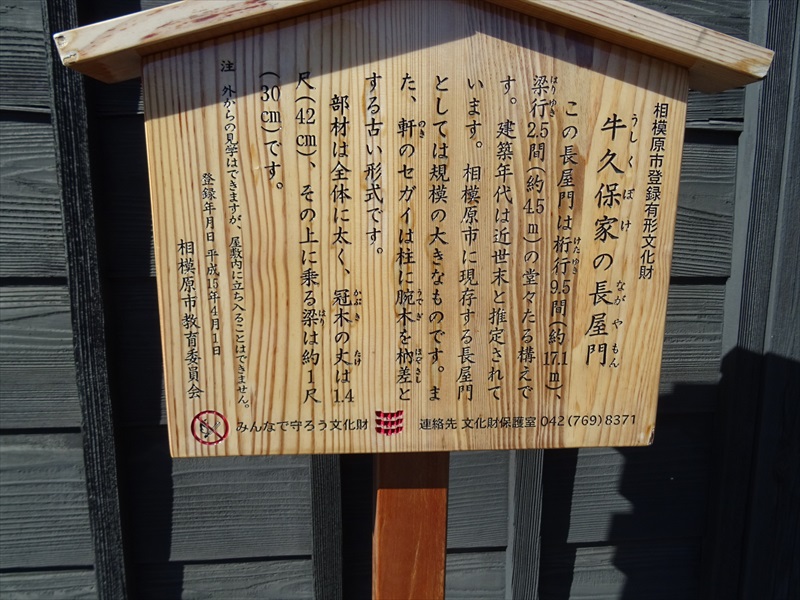 相模原市登録有形文化財
うしくぼけ ながやもん
牛久保家の長屋門
けたゆき
この長屋門は桁行9.5間(約17.1m)、
はりゆき
梁行2.5間(約4.5m)の堂々たる構えで
す。建築年代は近世末と推定されて
います。相模原市に現存する長屋門
としては規模の大きなものです。ま
のき うでぎ ほぞさし
た、軒のセガイは柱に腕木を枘差と
する古い形式です。
かぶき たけ
部材は全体に太く、冠木の丈は1.4
はり
尺(42cm)、その上に乗る梁は約1尺
(30cm)です。
注 外からの見学はできますが、屋敷内に立ち入ることはできません。
登録年月日 平成15年4月1日
相模原市教育委員会
みんなで守ろう文化財
連絡先 文化財保護室 042(769)8371